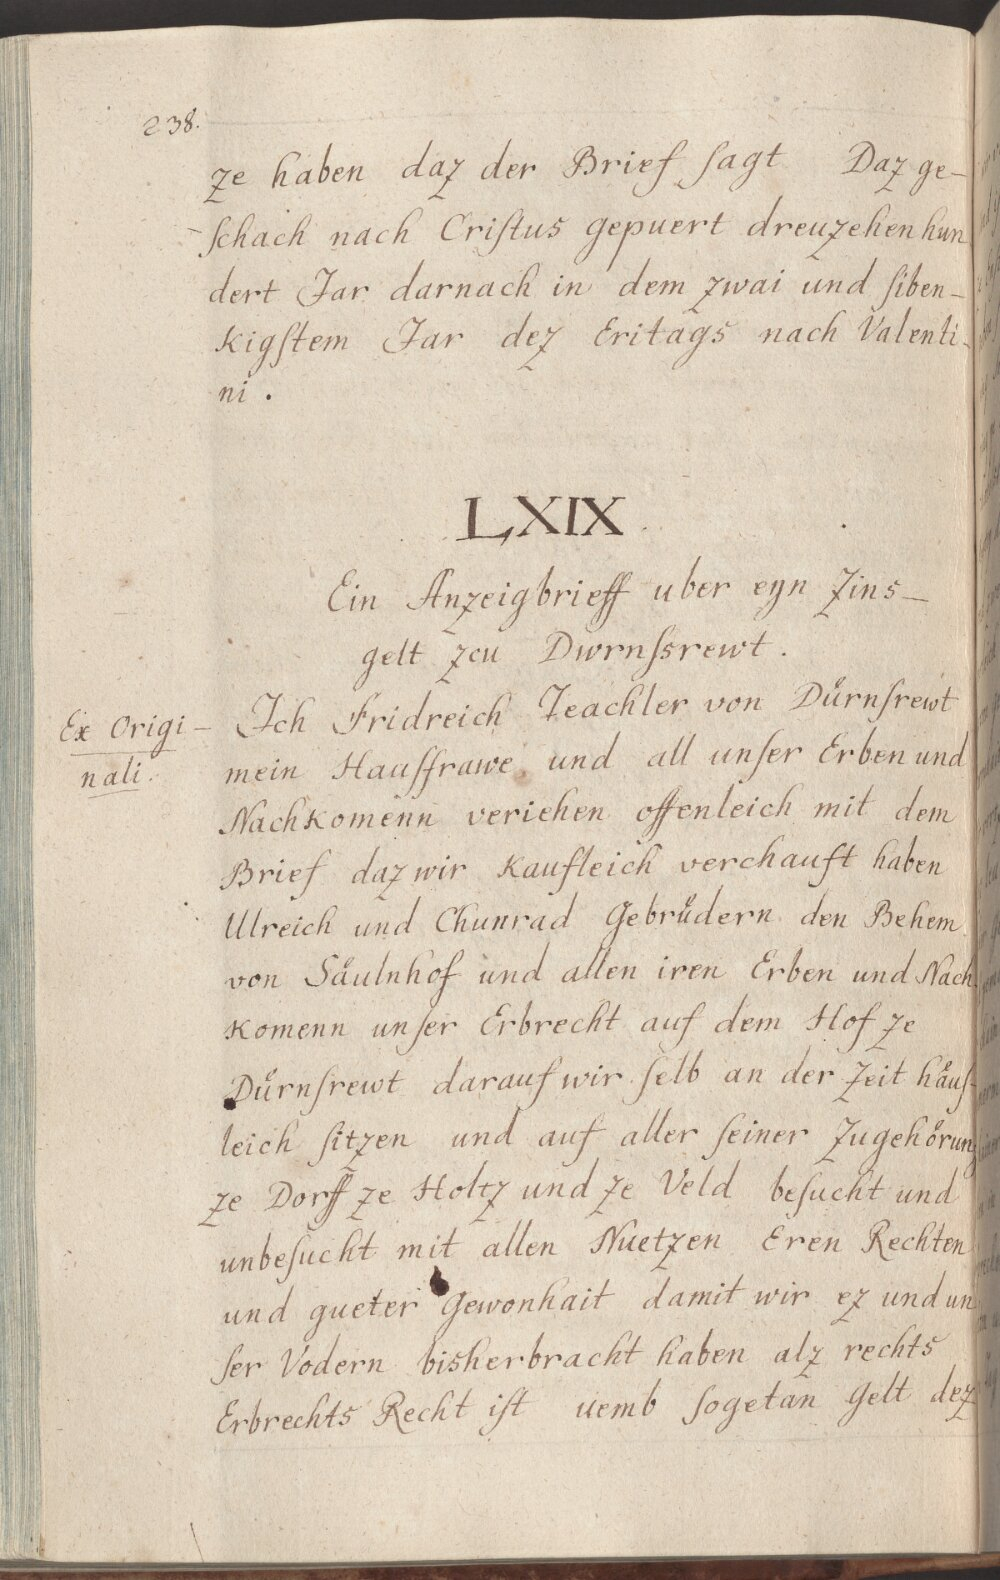 238.
ze haben daz der Brief ſagt Daz ge-
ſchach nach Criſtus gepuert dreuzehen hun
dert Jar darnach in dem zwai und ſiben-
kigſtem Jar dez Eritags nach Valenti-
ni.
LXIX
Ein Anzeigbrieff uber eyn Zins-
gelt zcu Dwrnſsrewt.
Ex Origi-
nali.
Ich Fridreich Teachler von Důrnſrewt
mein Hauſfrawe und all unſer Erben und
Nachkomenn veriehen offenleich mit dem
Brief daz wir Kaufleich verchauft haben
Ulreich und Chunrad Gebrůdern den Behem
von Såulnhof und allen iren Erben und Nach
Komenn unſer Erbrecht auf dem Hof ze
Důrnſrewt darauf wir ſelb an der Zeit håuſ-
leich ſitzen und auf aller ſeiner Zugehörung
ze Dorff ze Holtz und ze Veld beſucht und
unbeſucht mit allen Nuetzen Eren Rechten
und gueter Gewonhait damit wir ez und un
ſer Vodern bisherbracht haben alz rechts
Erbrechts Recht iſt uemb ſogetan Gelt dez